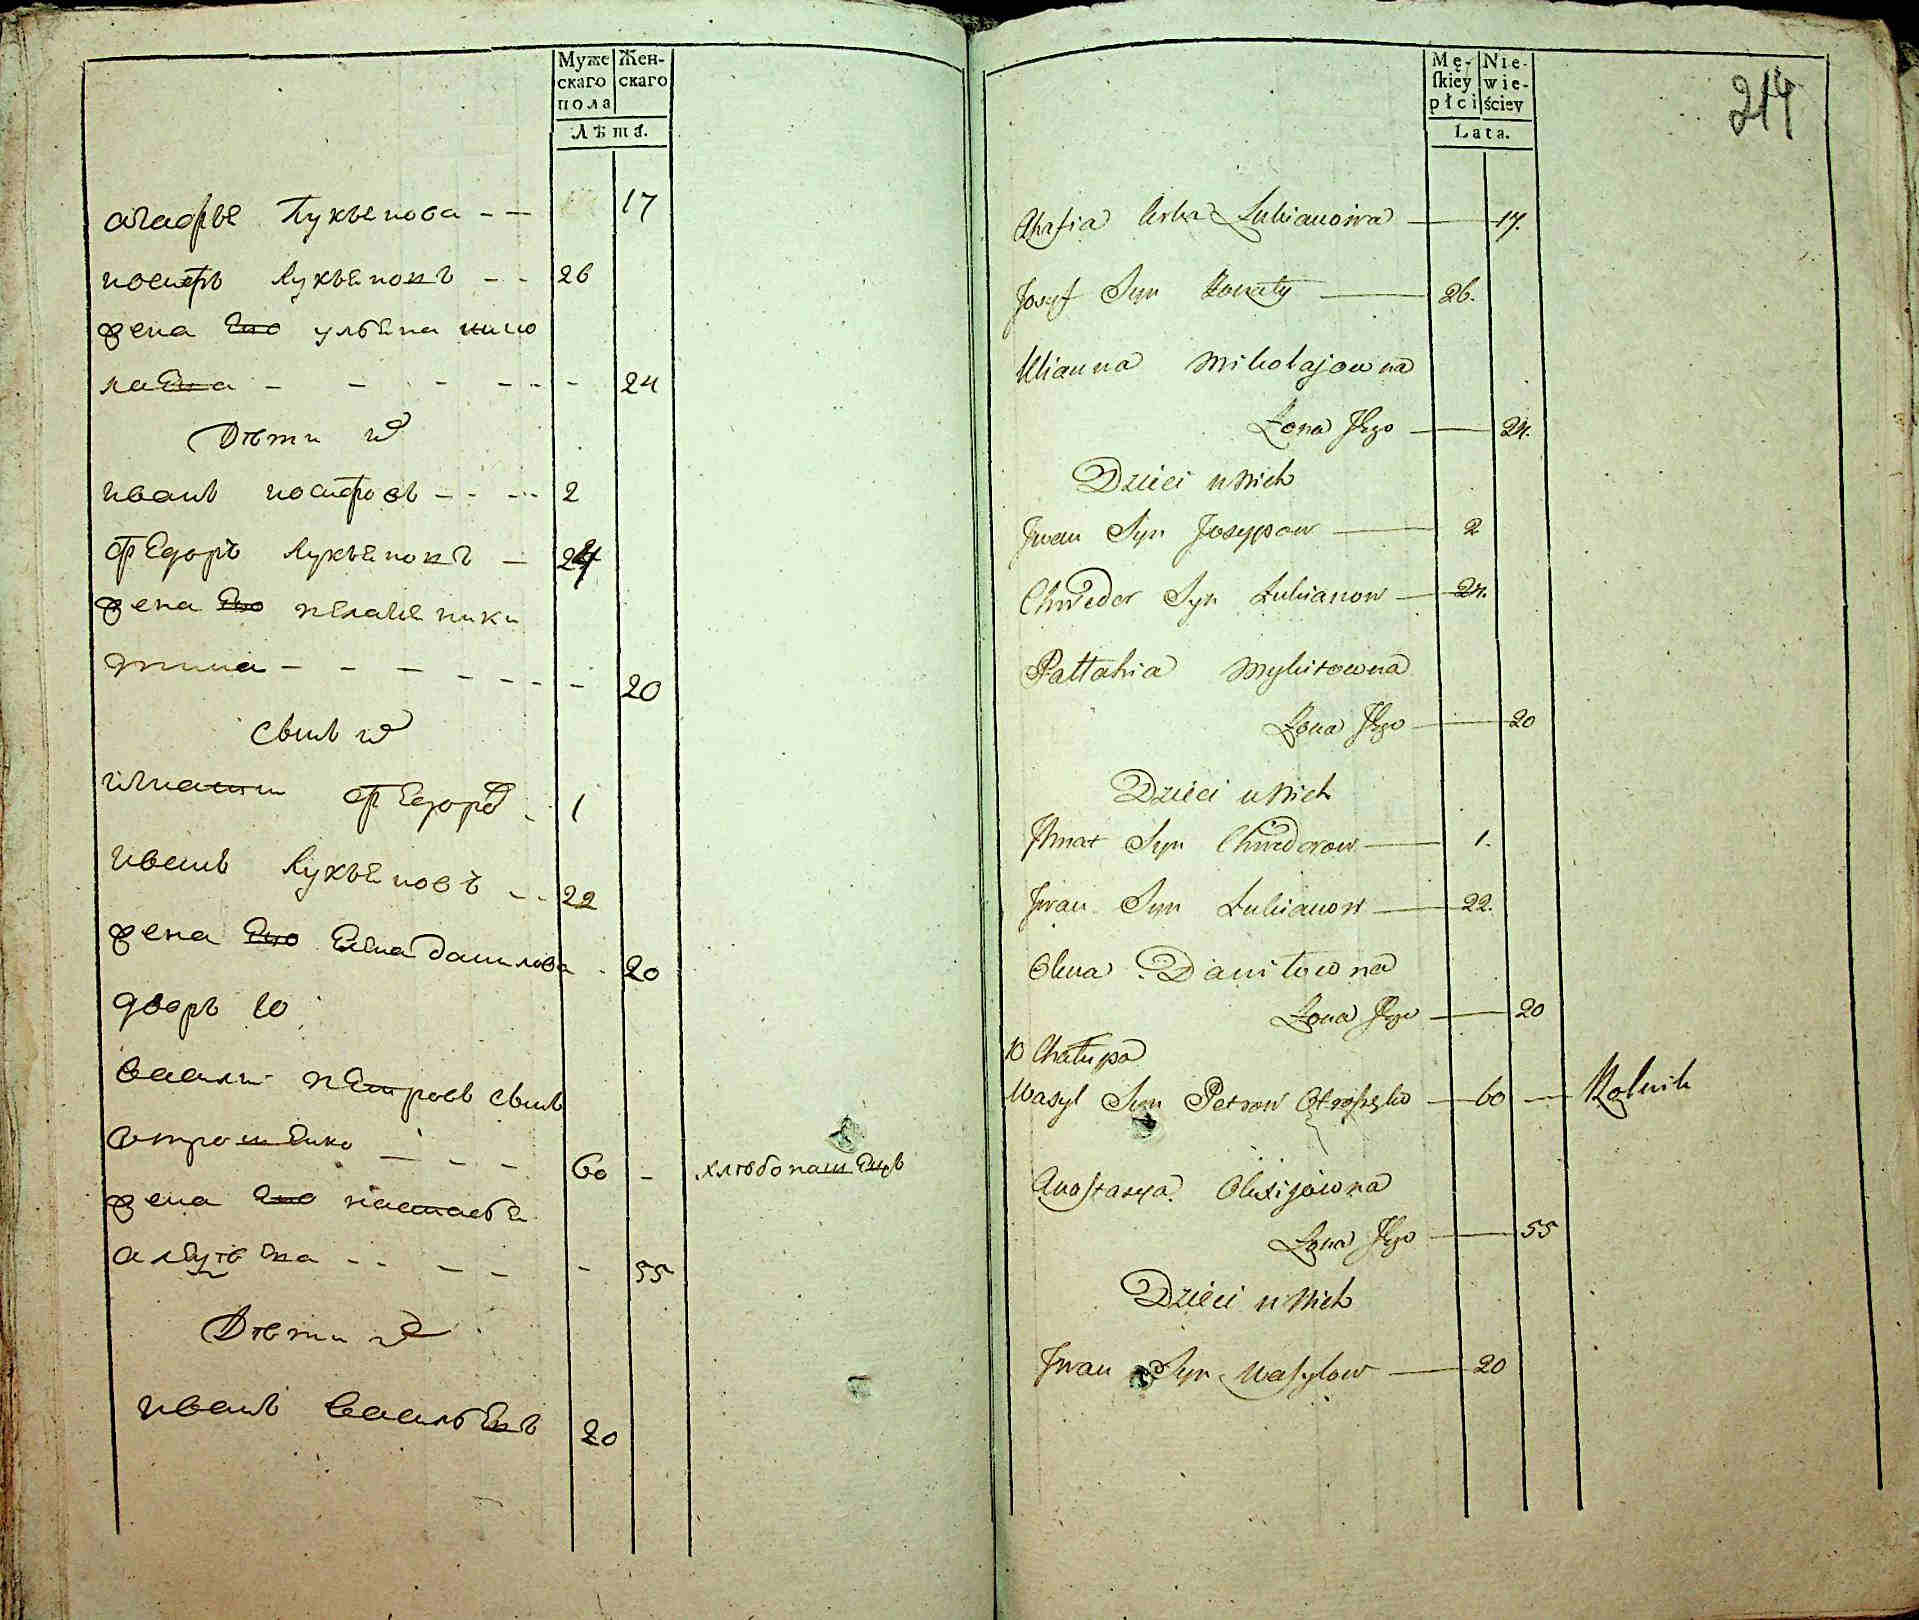 Муже Жен-
скаго скаго
пола
Лѣта.
агафья Лукьянова - - 17
иосифъ Лукьяновъ - - 26
жена его ульяна нико
лаева - - - - - - 24
Дѣти их
иванъ иосифовъ - - - 2
федоръ Лукьяновъ - 24
жена его пелагея ники
тина - - - - - - - 20
сынъ их
игнатий федоров - 1
иванъ Лукьяновъ - - 22
жена его елена данилова - 20
дворъ 10
василий петровъ сынъ
отрошенко - - - 60 - хлѣбопашецъ
жена его настасья
алексѣевна - - - - - 55
Дѣти их
иванъ васильевъ 20
Mę- Nie-
ſkiey wie-
płci ściey
Lata.
214
Ahafia Corka Lukianowna 17.
Josyf Syn 26.
Ulianna Mikołajowna
Żona Jego 24.
Dzieci u Nich
Jwan Syn Josypow 2
Chwedor Syn Lukianow 24.
Pałłahia Mykitowna
Żona Jego 20
Dzieci u Nich
Jhnat Syn Chwedorow 1.
Jwan Syn Lukianow 22.
Olena Daniłowna
Żona Jego 20
10 Chałupa
Wasyl Syn Petrow Otroszko 60 Rolnik
Anastasya Olexijowna
Żona Jego 55
Dzieci u Nich
Jwan Syn Wasylow 20